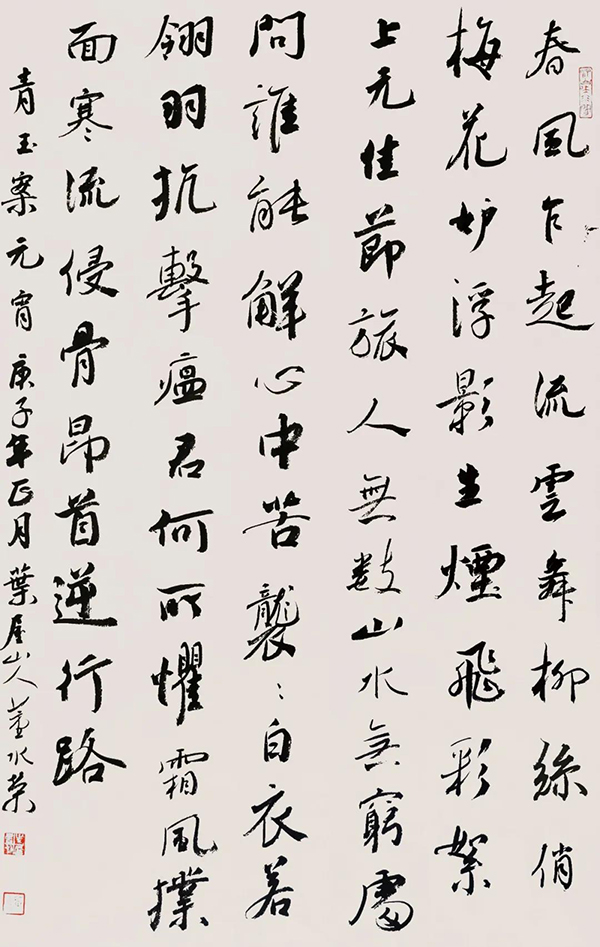 春風乍起流雲舞柳絲俏
梅花妒浮影生煙飛彩絮
上元佳節旅人無數山水無窮處
問誰能解心中苦襲〻白衣若
翎羽抗擊瘟君何所懼霜風撲
面寒流侵骨昂首逆行路
青玉案元宵庚子年正月葉屋山人董水榮